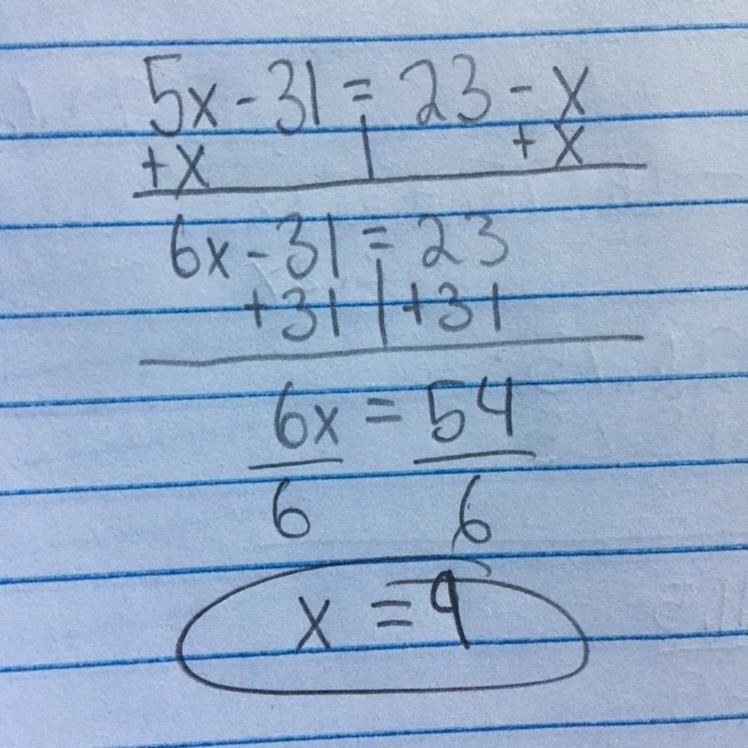 5x - 31 = 23 - x
+x | +x
6x - 31 = 23
+31 | +31
6x = 54
6 6
x = 9